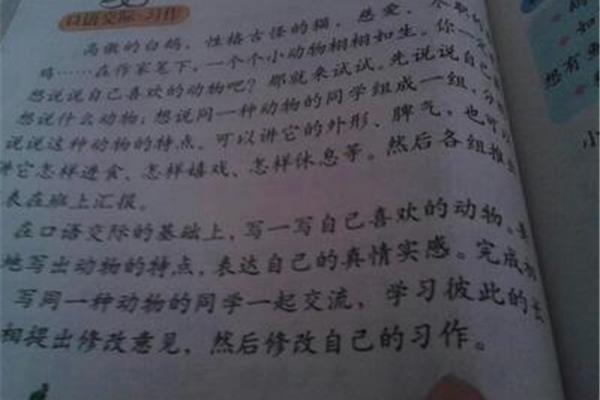 口语交际·习作
高傲的白鹅，性格古怪的猫，慈爱、尽职的
鸡……在作家笔下，一个个小动物栩栩如生。你一定
想说说自己喜欢的动物吧？那就来试试。先说说自己
想说什么动物；想说同一种动物的同学组成一组，分
说说这种动物的特点。可以讲它的外形、脾气，也可以
讲它怎样进食、怎样嬉戏、怎样休息等。然后各组推
表在班上汇报。
在口语交际的基础上，写一写自己喜欢的动物。
地写出动物的特点，表达自己的真情实感。完成
写同一种动物的同学一起交流，学习彼此的长
相提出修改意见，然后修改自己的习作。
如
想有
小